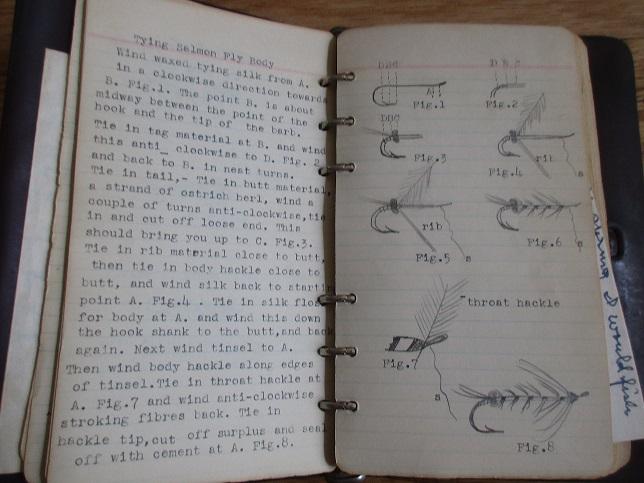 Tying Salmon Fly Body
Wind waxed tying silk from A.
in a clockwise direction towards
B. Fig.1. The point B. is about
midway between the point of the
hook and the tip of the barb.
Tie in tag material at B. and wind
this anti_ clockwise to D. Fig. 2
and back to B. in neat turns.
Tie in tail,- Tie in butt material,
a strand of ostrich herl, wind a
couple of turns anti-clockwise,tie
in and cut off loose end. This
should bring you up to C. Fig.3.
Tie in rib material close to butt,
then tie in body hackle close to
butt, and wind silk back to starting
point A. Fig.4 . Tie in silk floss
for body at A. and wind this down
the hook shank to the butt,and back
again. Next wind tinsel to A.
Then wind body hackle along edges
of tinsel.Tie in throat hackle at
A. Fig.7 and wind anti-clockwise
stroking fibres back. Tie in
hackle tip,cut off surplus and seal
off with cement at A. Fig.8.
DBC
A
Fig.1
D B C
Fig.2
DBC
Fig.3
rib
s
Fig.4
rib
s
Fig.5
s
Fig.6
throat hackle
Fig.7
s
Fig.8
I would fish